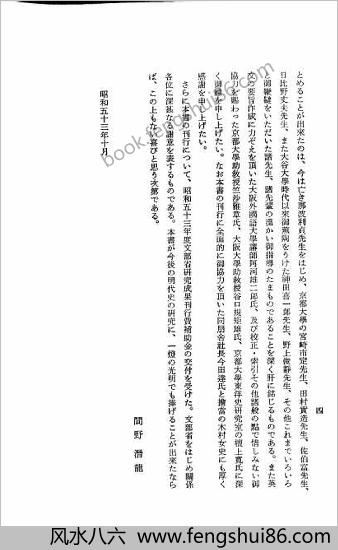 とめることが出来たのは、今は亡き那波利貞先生をはじめ、京都大學の宮崎市定先生、田村實造先生、佐伯富先生、
日比野丈夫先生、また大谷大學時代以來御薫陶をうけた神田喜一郎先生、野上俊靜先生、その他これまでいろいろ
と御鞭撻をいただいた諸先生、諸先輩の温かい御指導のたまものであることを深く肝に銘じるものである。また英
文の要旨作成に力ぞえを頂いた大阪外國語大學講師阿河雄二郎氏、及び校正・索引その他諸般の點で惜しみない御
協力を賜わった京都大學助教授竺沙雅章氏、大阪大學助教授谷口規矩雄氏、京都大學東洋史研究室の檀上寛氏に深
く御禮を申し上げたい。なお本書の刊行に全面的に御協力を頂いた同朋舎社長今田達氏と擔當の木村女史にも厚く
感謝を申し上げたい。
さらに本書の刊行について、昭和五十三年度文部省研究成果刊行費補助金の交付を受けた。文部省をはじめ關係
各位に深甚なる謝意を表するものである。本書が今後の明代史の研究に、一燈の光明でも捧げることが出來たなら
ば、この上もなき喜びと思う次第である。
昭和五十三年十月
間野潛龍
四
book.fengshui86.com
风水八六 www.fengshui86.com